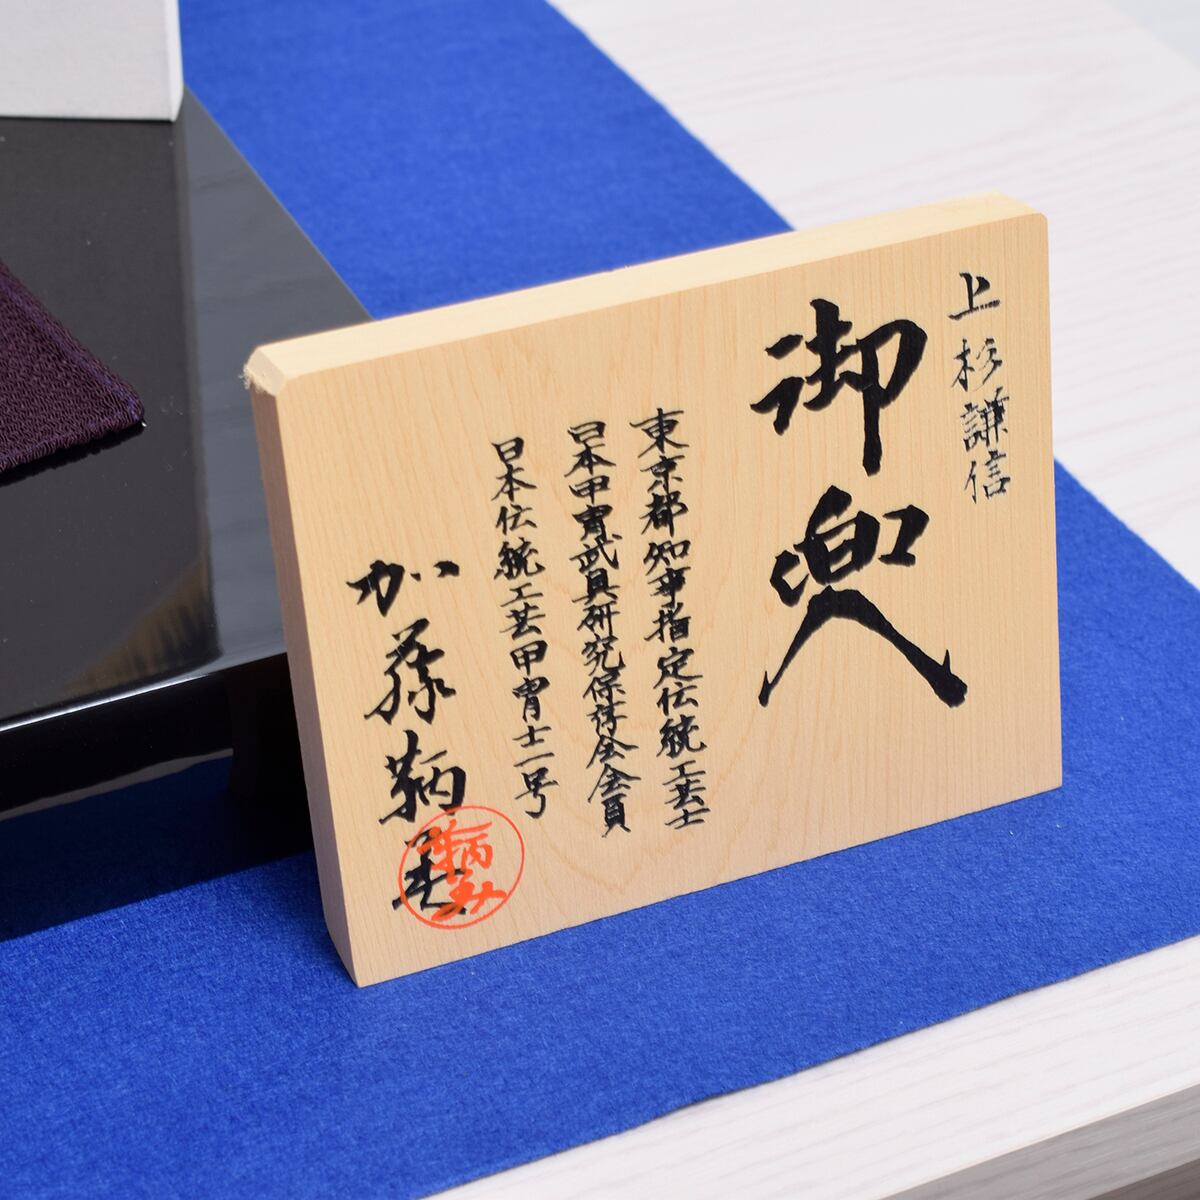 上杉謙信
御兜
東京都知事指定伝統工芸士
日本甲冑武具研究保存会会員
日本伝統工芸甲冑士一号
加藤鞆美
鞆み